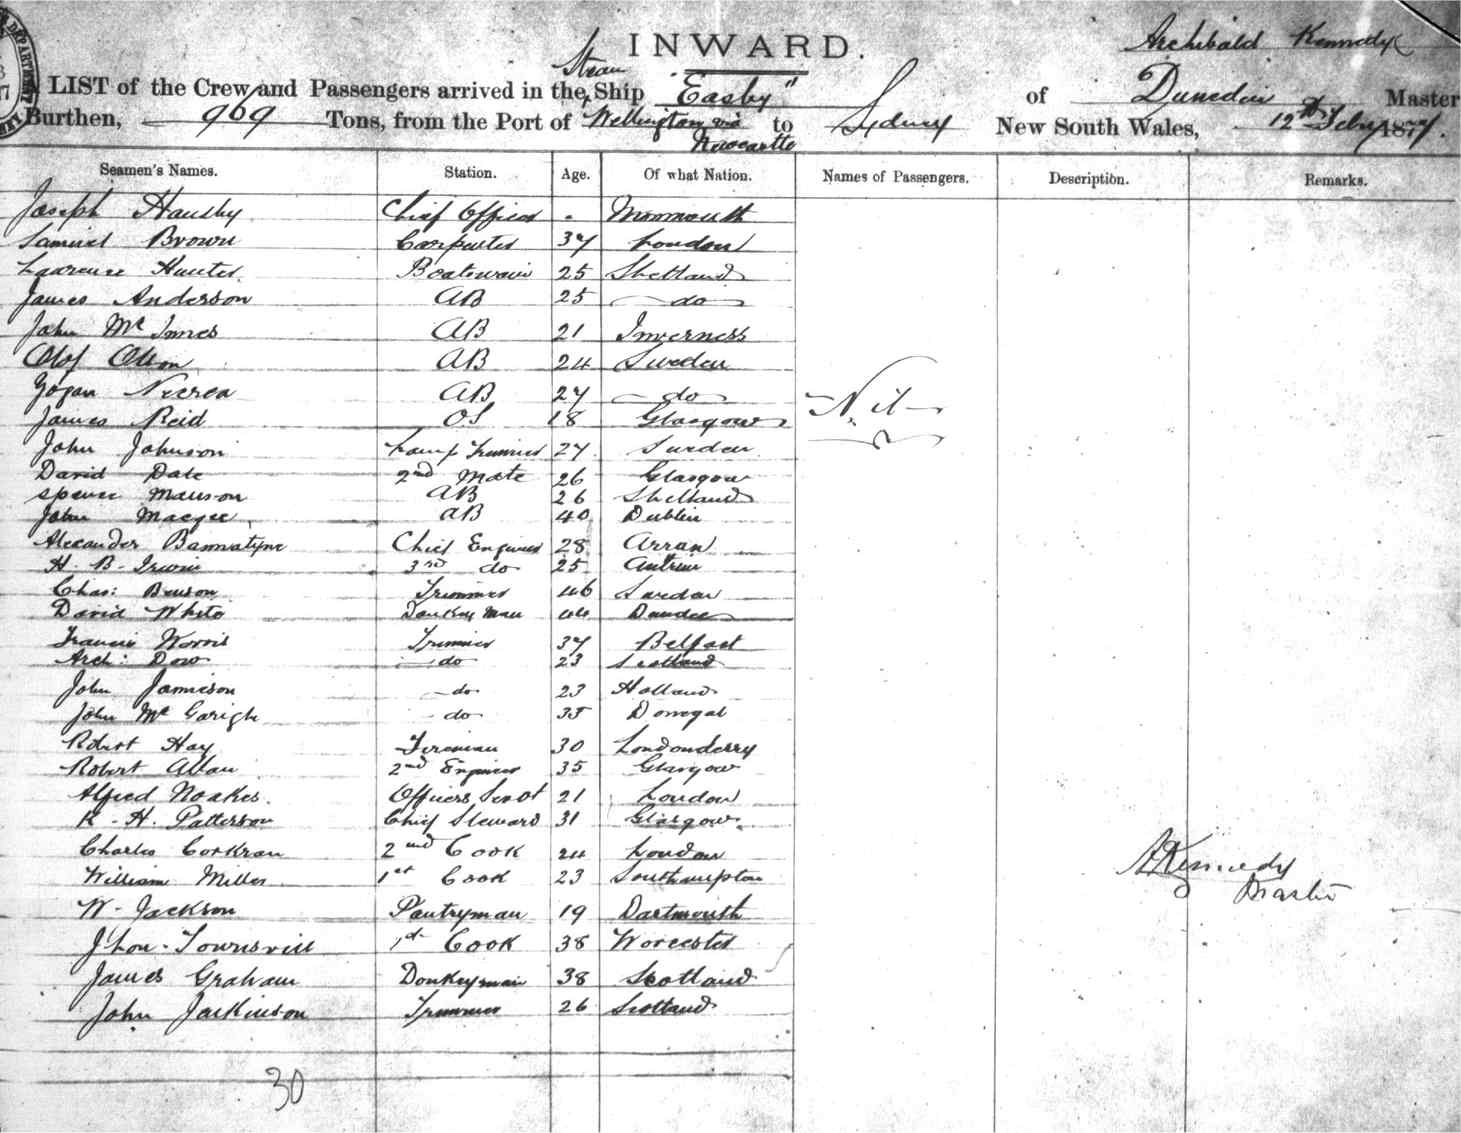 INWARD.
Archibald Kennedy
Steam
LIST of the Crew and Passengers arrived in the Ship "Easby" of Dunedin Master
Burthen, 969 Tons, from the Port of Wellington via Newcastle to Sydney New South Wales, 12th Feby 1877.
Seamen's Names. Station. Age. Of what Nation. Names of Passengers. Description. Remarks.
Joseph Chief Officer - Monmouth
Samuel Brown Carpenter 37 London
Laurence Hunter Boatswain 25 Shetland
James Anderson AB 25 do
John Mc Innes AB 21 Inverness
Olof Olson AB 24 Sweden
AB 27 do
Nil
James Reid OS 18 Glasgow
John Johnson Lamp Trimmer 27 Sweden
David Dale 2nd Mate 26 Glasgow
Spence Manson AB 26 Shetland
John Macgee AB 40 Dublin
Alexander Bannatyne Chief Engineer 28 Arran
H. B. Irwin 3rd do 25 Antrim
Chas: Benson Trimmer 46 Sweden
David White Donkey Man 44 Dundee
Francis Trimmer 37 Belfast
Arch: Dow do 23 Scotland
John Jamieson do 23 Holland
John Mc Garigh do 35 Donegal
Robert Hay Fireman 30 Londonderry
Robert Allan 2nd Engineer 35 Glasgow
Alfred Noakes. Officers Servt 21 London
R. H. Patterson Chief Steward 31 Glasgow.
Charles Corkran 2nd Cook 24 London
William Miller 1st Cook 23 Southampton
AKennedy
Master
W. Jackson Pantryman 19 Dartmouth
Jhon Townsvill 1st Cook 38 Worcester
James Graham Donkeyman 38 Scotland
John Jackinson Trimmer 26 Scotland
30